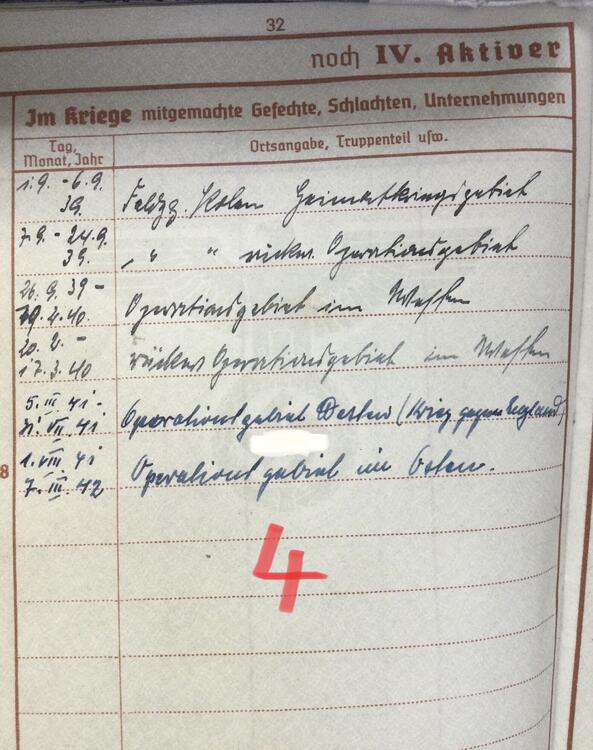 32
noch IV. Aktiver
Im Kriege mitgemachte Gefechte, Schlachten, Unternehmungen
Tag,
Monat, Jahr
Ortsangabe, Truppenteil usw.
1.9. - 6.9.
39.
Feldzg. Polen Heimatkriegsgebiet
7.9. - 24.9.
39.
" " rückw. Operationsgebiet
26.9.39 -
19.2.40.
Operationsgebiet im Westen
20.2. -
17.3.40
rückw. Operationsgebiet im Westen
5.III.41 -
31.VII.41.
Operationsgebiet Westen (Krieg gegen England)
8
1.VIII.41
7.III.42
Operationsgebiet im Osten.
4